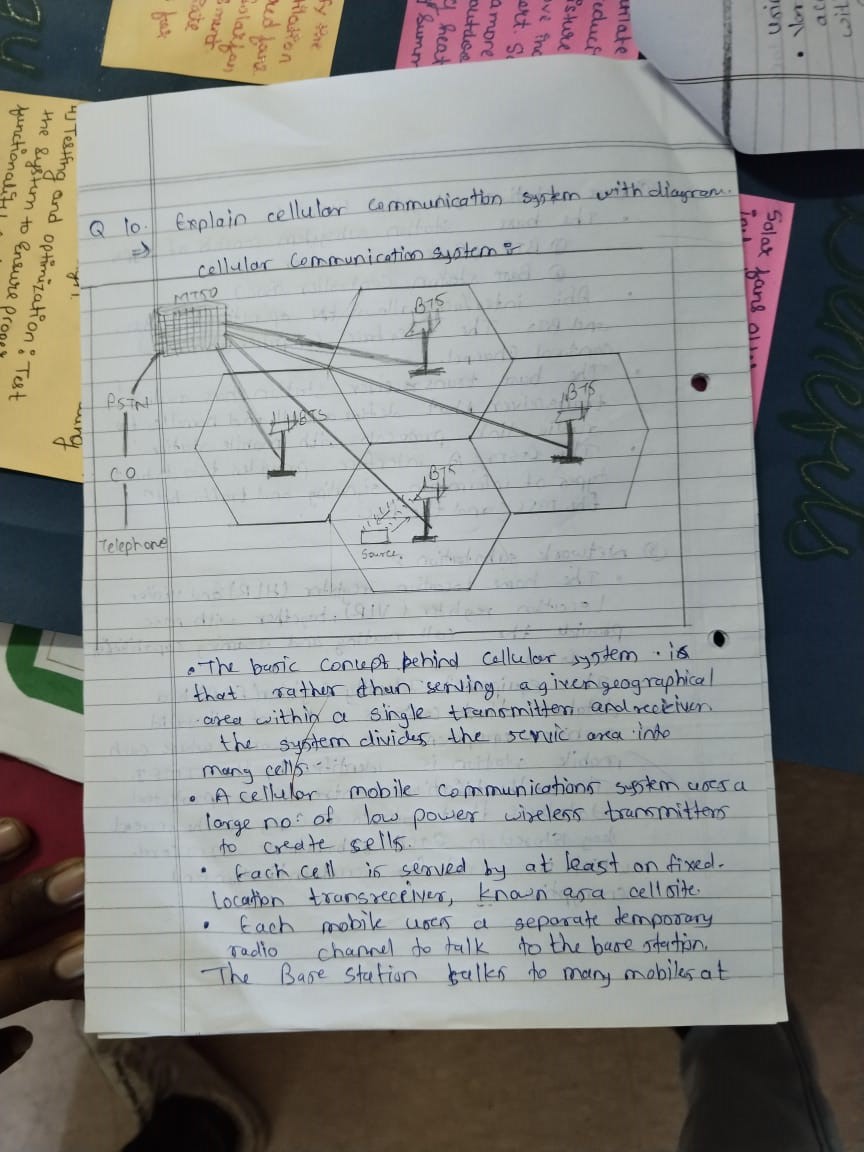 Q 10. Explain cellular communication system with diagram.
⇒ cellular communication system :
MTSO
BTS
BTS
BTS
PSTN
CO
BTS
Telephone
Source.
• The basic concept behind cellular system is
that rather than serving a given geographical
area within a single transmitter and receiver.
the system divides the servic area into
many cells.
• A cellular mobile communications system uses a
large no: of low power wireless transmitters
to create sells.
• Each cell is served by at least on fixed-
location transreceiver, known as a cell site.
• Each mobile uses a separate temporary
radio channel to talk to the base station.
The Base Station talks to many mobiles at
4) Testing and optimization: Test
the system to ensure proper
functionality
Solar fans